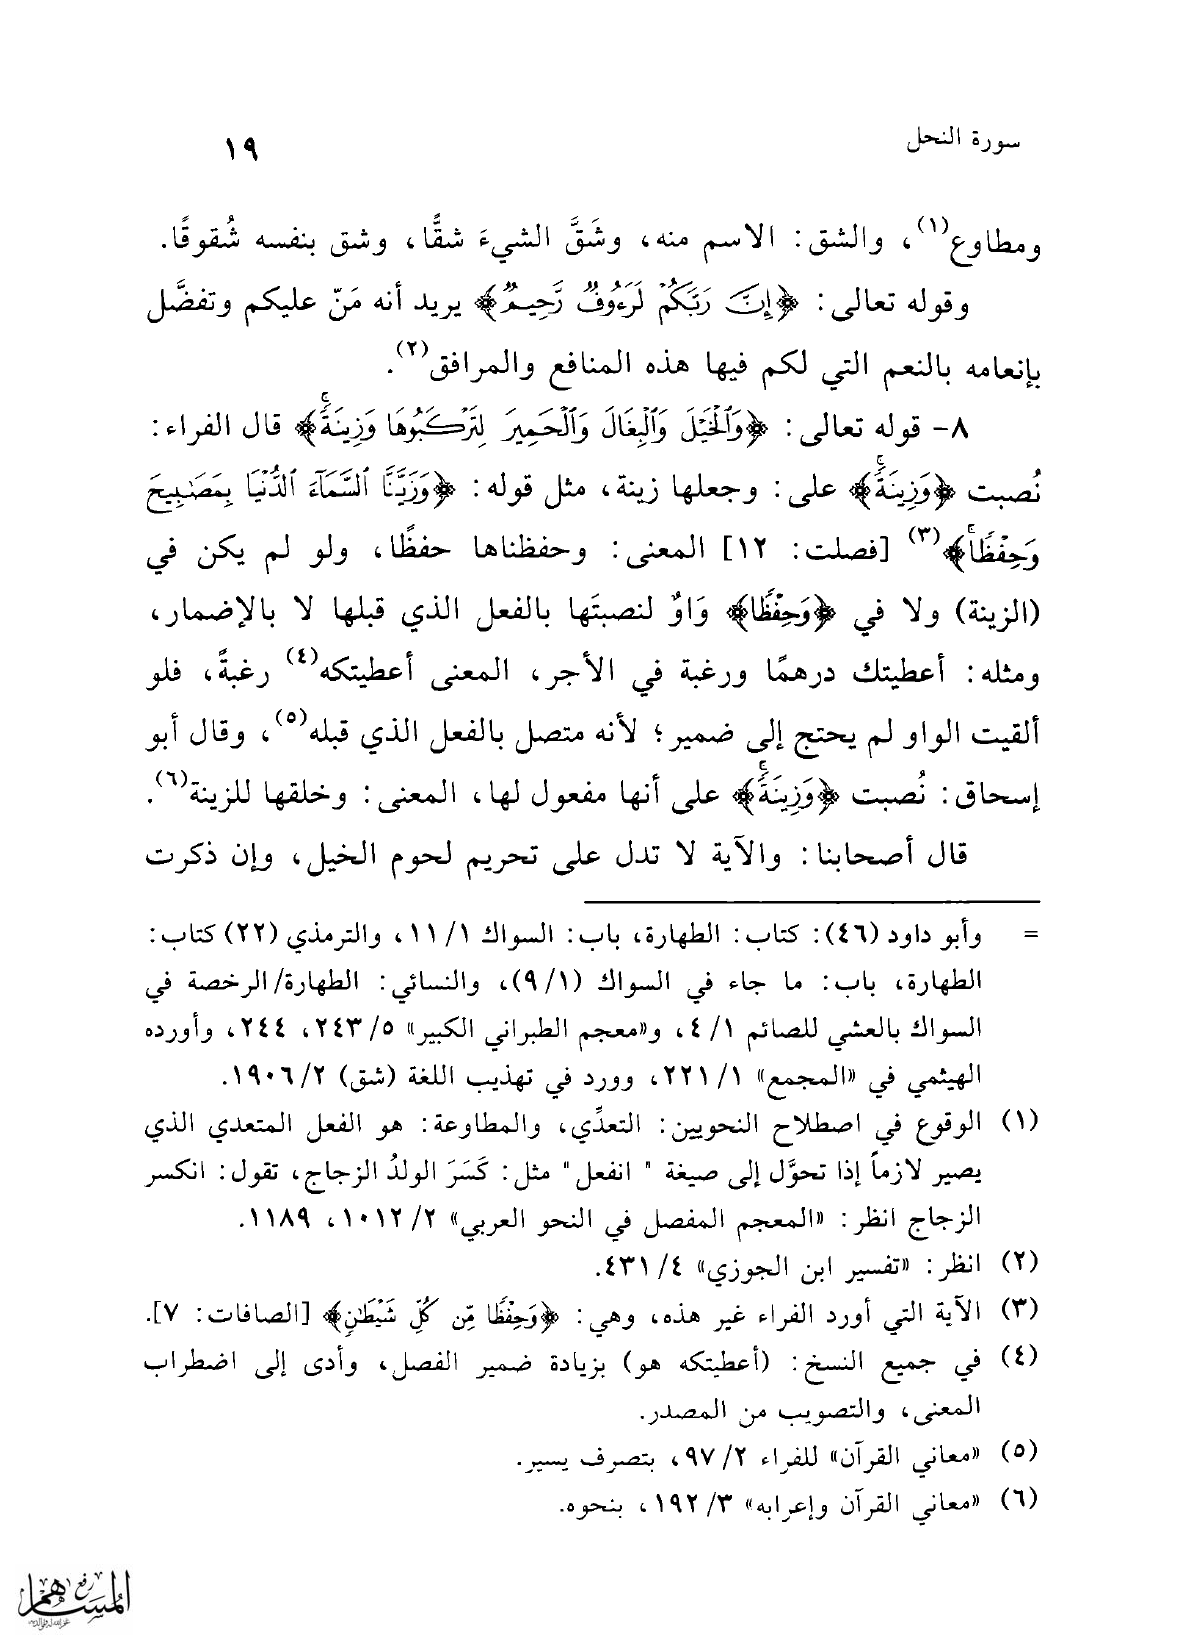 سورة النحل ١٩
ومطاوع(١)، والشق: الاسم منه، وشَقَّ الشيءَ شقًّا، وشق بنفسه شُقوقًا.
وقوله تعالى: ﴿إِنَّ رَبَّكُمْ لَرَءُوفٌ رَّحِيمٌ﴾ يريد أنه مَنّ عليكم وتفضَّل
بإنعامه بالنعم التي لكم فيها هذه المنافع والمرافق(٢).
٨- قوله تعالى: ﴿وَٱلْخَيْلَ وَٱلْبِغَالَ وَٱلْحَمِيرَ لِتَرْكَبُوهَا وَزِينَةً﴾ قال الفراء:
نُصبت ﴿وَزِينَةً﴾ على: وجعلها زينة، مثل قوله: ﴿وَزَيَّنَّا ٱلسَّمَآءَ ٱلدُّنْيَا بِمَصَٰبِيحَ
وَحِفْظًا﴾(٣) [فصلت: ١٢] المعنى: وحفظناها حفظًا، ولو لم يكن في
(الزينة) ولا في ﴿وَحِفْظًا﴾ وَاوٌ لنصبتَها بالفعل الذي قبلها لا بالإضمار،
ومثله: أعطيتك درهمًا ورغبة في الأجر، المعنى أعطيتكه(٤) رغبةً، فلو
ألقيت الواو لم يحتج إلى ضمير؛ لأنه متصل بالفعل الذي قبله(٥)، وقال أبو
إسحاق: نُصبت ﴿وَزِينَةً﴾ على أنها مفعول لها، المعنى: وخلقها للزينة(٦).
قال أصحابنا: والآية لا تدل على تحريم لحوم الخيل، وإن ذكرت
= وأبو داود (٤٦): كتاب: الطهارة، باب: السواك ١/ ١١، والترمذي (٢٢) كتاب:
الطهارة، باب: ما جاء في السواك (١/ ٩)، والنسائي: الطهارة/ الرخصة في
السواك بالعشي للصائم ١/ ٤، و«معجم الطبراني الكبير» ٥/ ٢٤٣، ٢٤٤، وأورده
الهيثمي في «المجمع» ١/ ٢٢١، وورد في تهذيب اللغة (شق) ٢/ ١٩٠٦.
(١) الوقوع في اصطلاح النحويين: التعدِّي، والمطاوعة: هو الفعل المتعدي الذي
يصير لازماً إذا تحوَّل إلى صيغة " انفعل " مثل: كَسَرَ الولدُ الزجاج، تقول: انكسر
الزجاج انظر: «المعجم المفصل في النحو العربي» ٢/ ١٠١٢، ١١٨٩.
(٢) انظر: «تفسير ابن الجوزي» ٤/ ٤٣١.
(٣) الآية التي أورد الفراء غير هذه، وهي: ﴿وَحِفْظًا مِّن كُلِّ شَيْطَٰنٍ﴾ [الصافات: ٧].
(٤) في جميع النسخ: (أعطيتكه هو) بزيادة ضمير الفصل، وأدى إلى اضطراب
المعنى، والتصويب من المصدر.
(٥) «معاني القرآن» للفراء ٢/ ٩٧، بتصرف يسير.
(٦) «معاني القرآن وإعرابه» ٣/ ١٩٢، بنحوه.